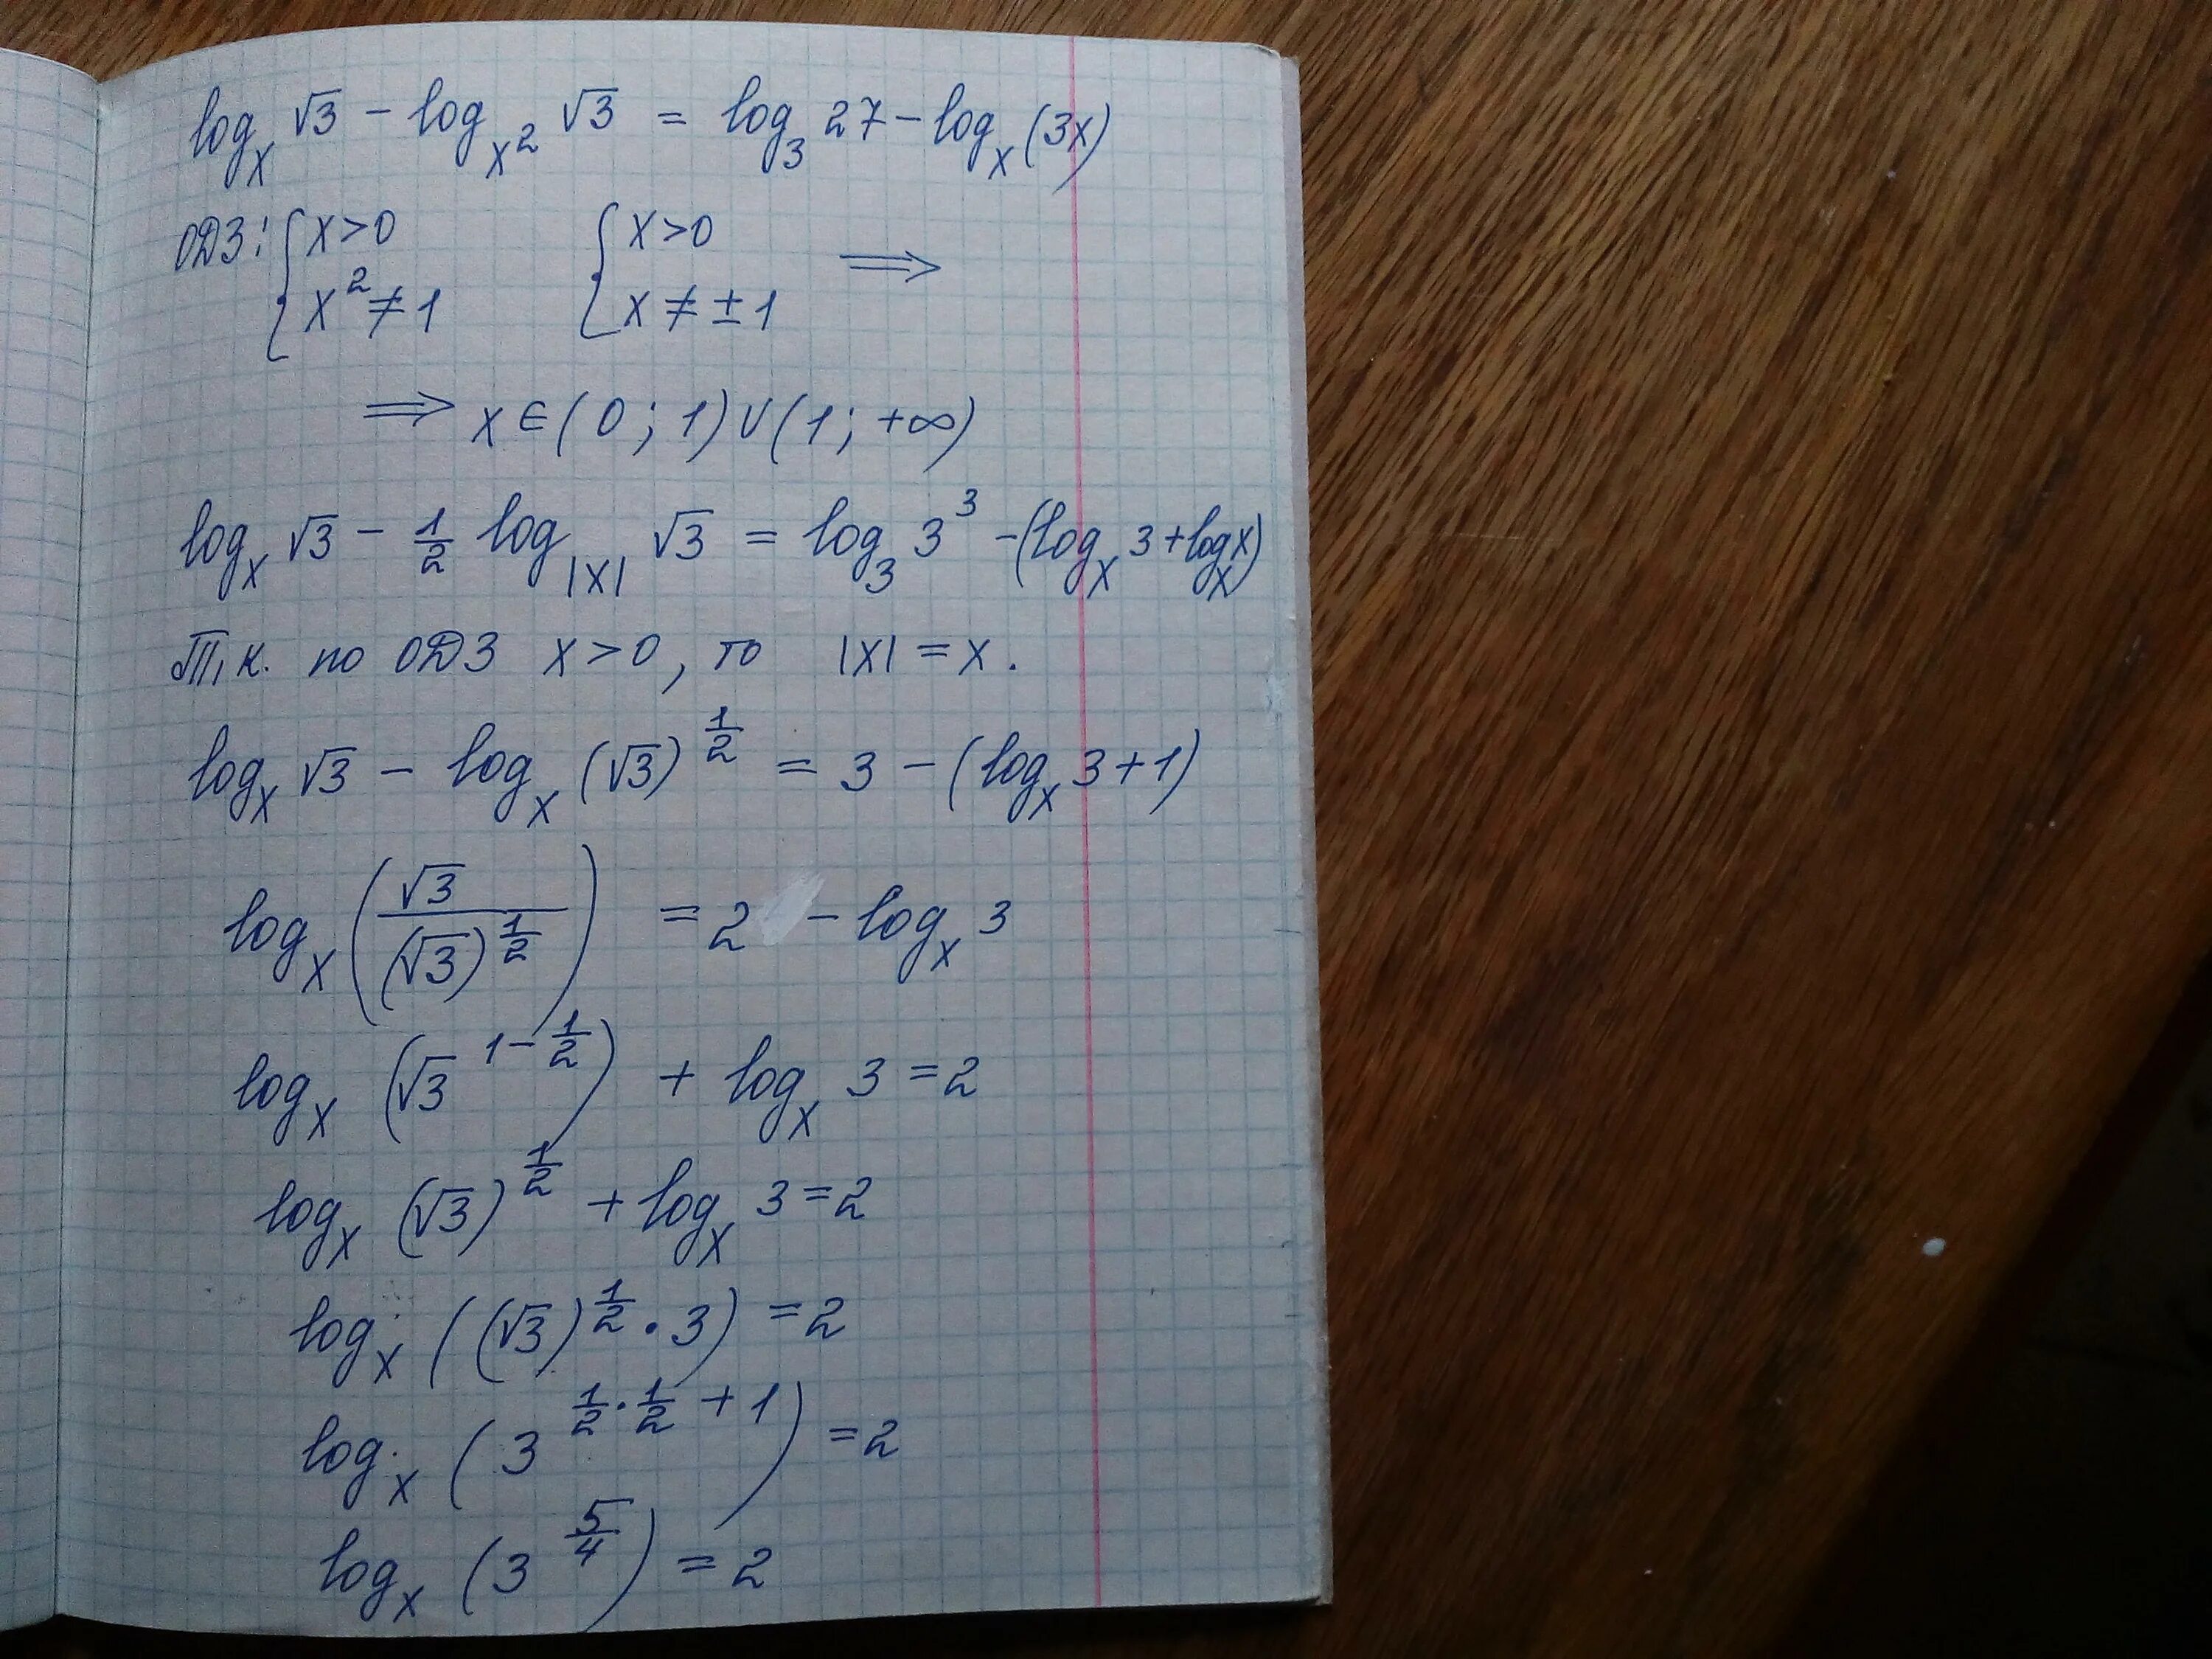 log_x √3 − log_{x²} √3 = log_3 27 − log_x (3x)
ОДЗ: { x > 0   { x > 0   ⟹
x² ≠ 1   x ≠ ± 1
⟹ x ∈ (0; 1) ∪ (1; +∞)
log_x √3 − 1/2 log_{|x|} √3 = log_3 3³ − (log_x 3 + log_x x)
Т.к. по ОДЗ x > 0, то |x| = x.
log_x √3 − log_x (√3)^{1/2} = 3 − (log_x 3 + 1)
log_x (√3 / (√3)^{1/2}) = 2 − log_x 3
log_x (√3^{1 − 1/2}) + log_x 3 = 2
log_x (√3)^{1/2} + log_x 3 = 2
log_x ((√3)^{1/2} · 3) = 2
log_x (3^{1/2 · 1/2 + 1}) = 2
log_x (3^{5/4}) = 2